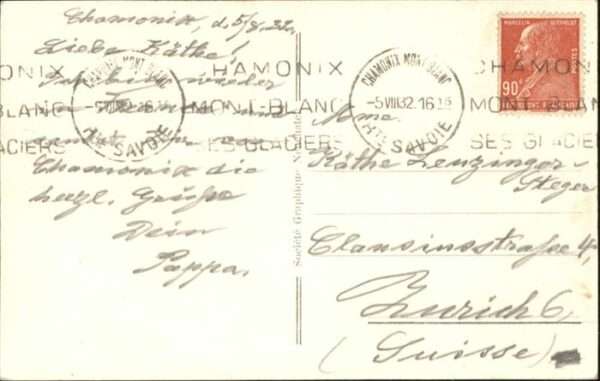 Chamonix, d. 5/8.32.
Liebe Käthe!
wieder
Chamonix die
herzl. Grüße
Dein
Pappa.
Société Graphique Neuchâtel
CHAMONIX MONT-BLANC
-5 VIII 32. 16
HTE SAVOIE
CHAMONIX MONT-BLANC
-5 VIII 32. 16 15
HTE SAVOIE
CHAMONIX
MONT-BLANC
SES GLACIERS
MARCELIN BERTHELOT
90c
POSTES
Mme.
Käthe Lenzinger-
Steger
Clausiusstraße 4,
Zurich 6
(Suisse)